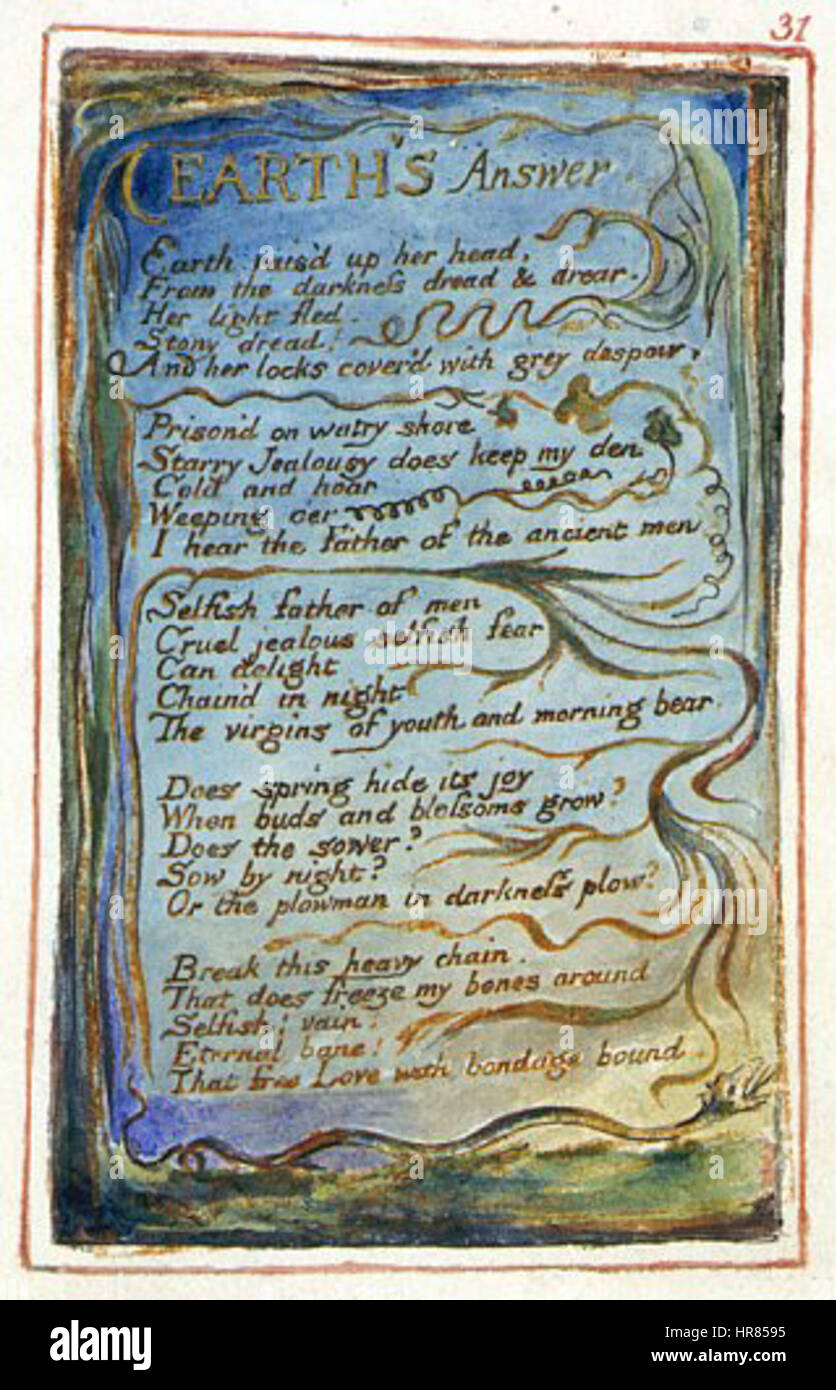 31
EARTH'S Answer.
Earth rais'd up her head,
From the darkneſs dread & drear.
Her light fled.
Stony dread!
And her locks cover'd with grey despair.
Prison'd on watry shore
Starry Jealousy does keep my den
Cold and hoar
Weeping o'er
I hear the Father of the ancient men
Selfish father of men
Cruel jealous selfish fear
Can delight
Chain'd in night
The virgins of youth and morning bear.
Does spring hide its joy
When buds and bloſsoms grow?
Does the sower?
Sow by night?
Or the plowman in darkneſs plow?
Break this heavy chain.
That does freeze my bones around
Selfish! vain!
Eternal bane!
That free Love with bondage bound.
alamy
a
a
a
a
alamy
alamy
a
alamy
Image ID: HR8595
www.alamy.com